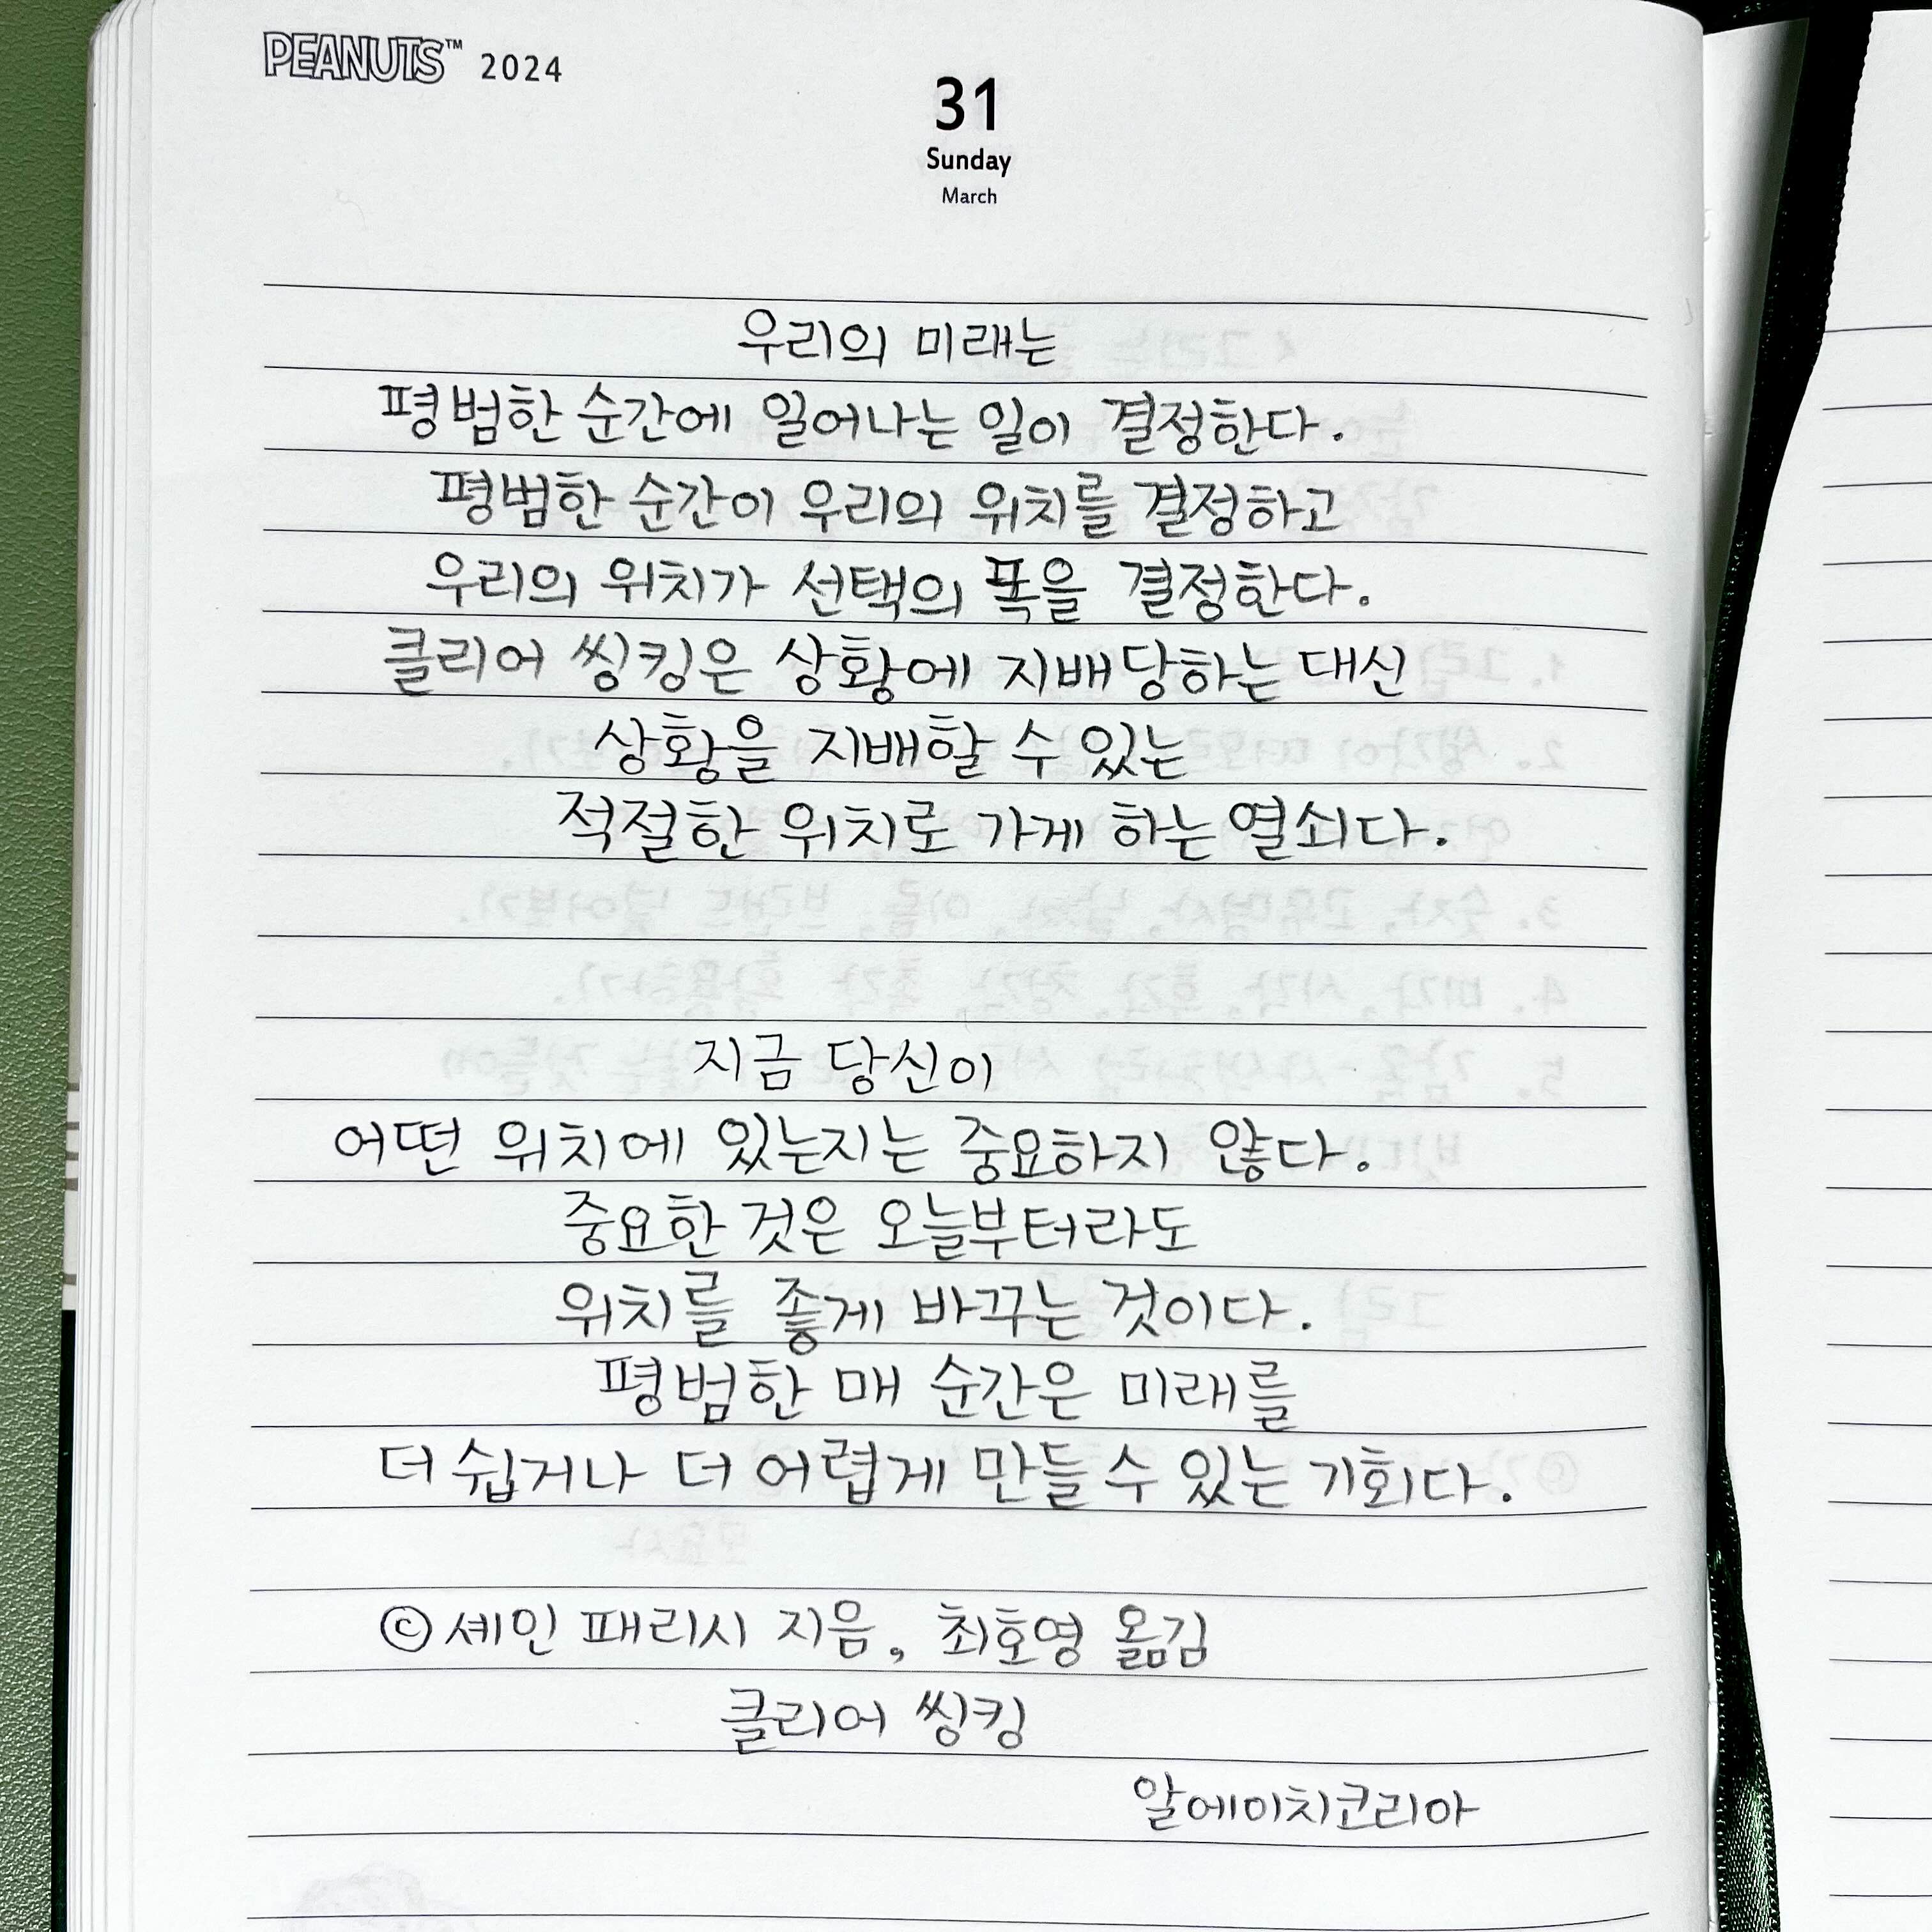 PEANUTS™ 2024
31
Sunday
March
우리의 미래는
평범한 순간에 일어나는 일이 결정한다.
평범한 순간이 우리의 위치를 결정하고
우리의 위치가 선택의 폭을 결정한다.
클리어 씽킹은 상황에 지배당하는 대신
상황을 지배할 수 있는
적절한 위치로 가게 하는 열쇠다.
지금 당신이
어떤 위치에 있는지는 중요하지 않다.
중요한 것은 오늘부터라도
위치를 좋게 바꾸는 것이다.
평범한 매 순간은 미래를
더 쉽거나 더 어렵게 만들 수 있는 기회다.
© 셰인 패리시 지음, 최호영 옮김
클리어 씽킹
알에이치코리아